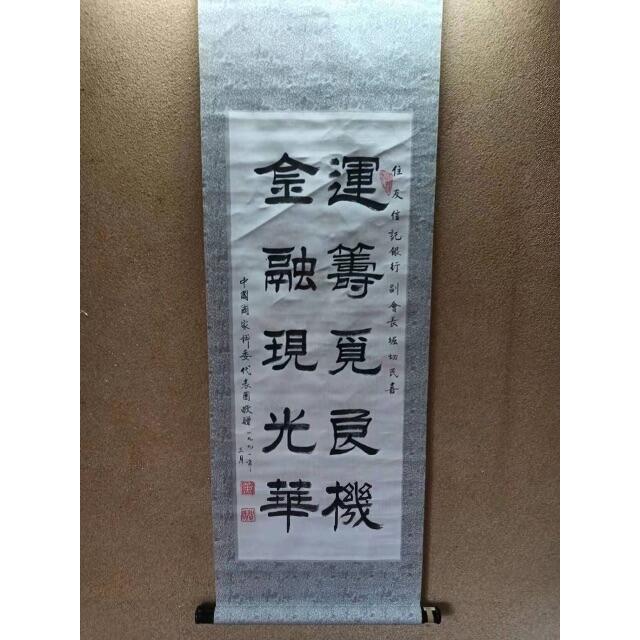 住友信託銀行副會長堀切民喜
運籌覓良機
金融現光華
中國國家科委代表團敬贈
一九九一年
三月